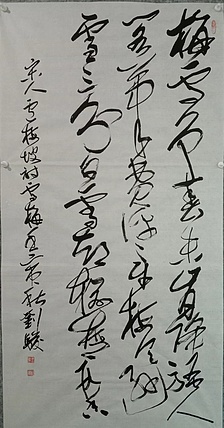 梅雪争春未肯降骚人
阁笔费评章梅须逊
雪三分白雪却输梅一段香
宋人卢梅坡诗雪梅